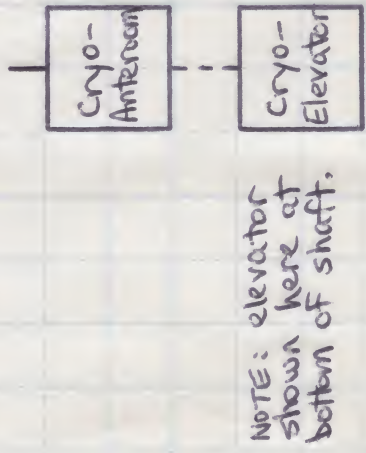 Cryo-
Anteroom
Cryo-
Elevator
NOTE: elevator
shown here at
bottom of shaft.